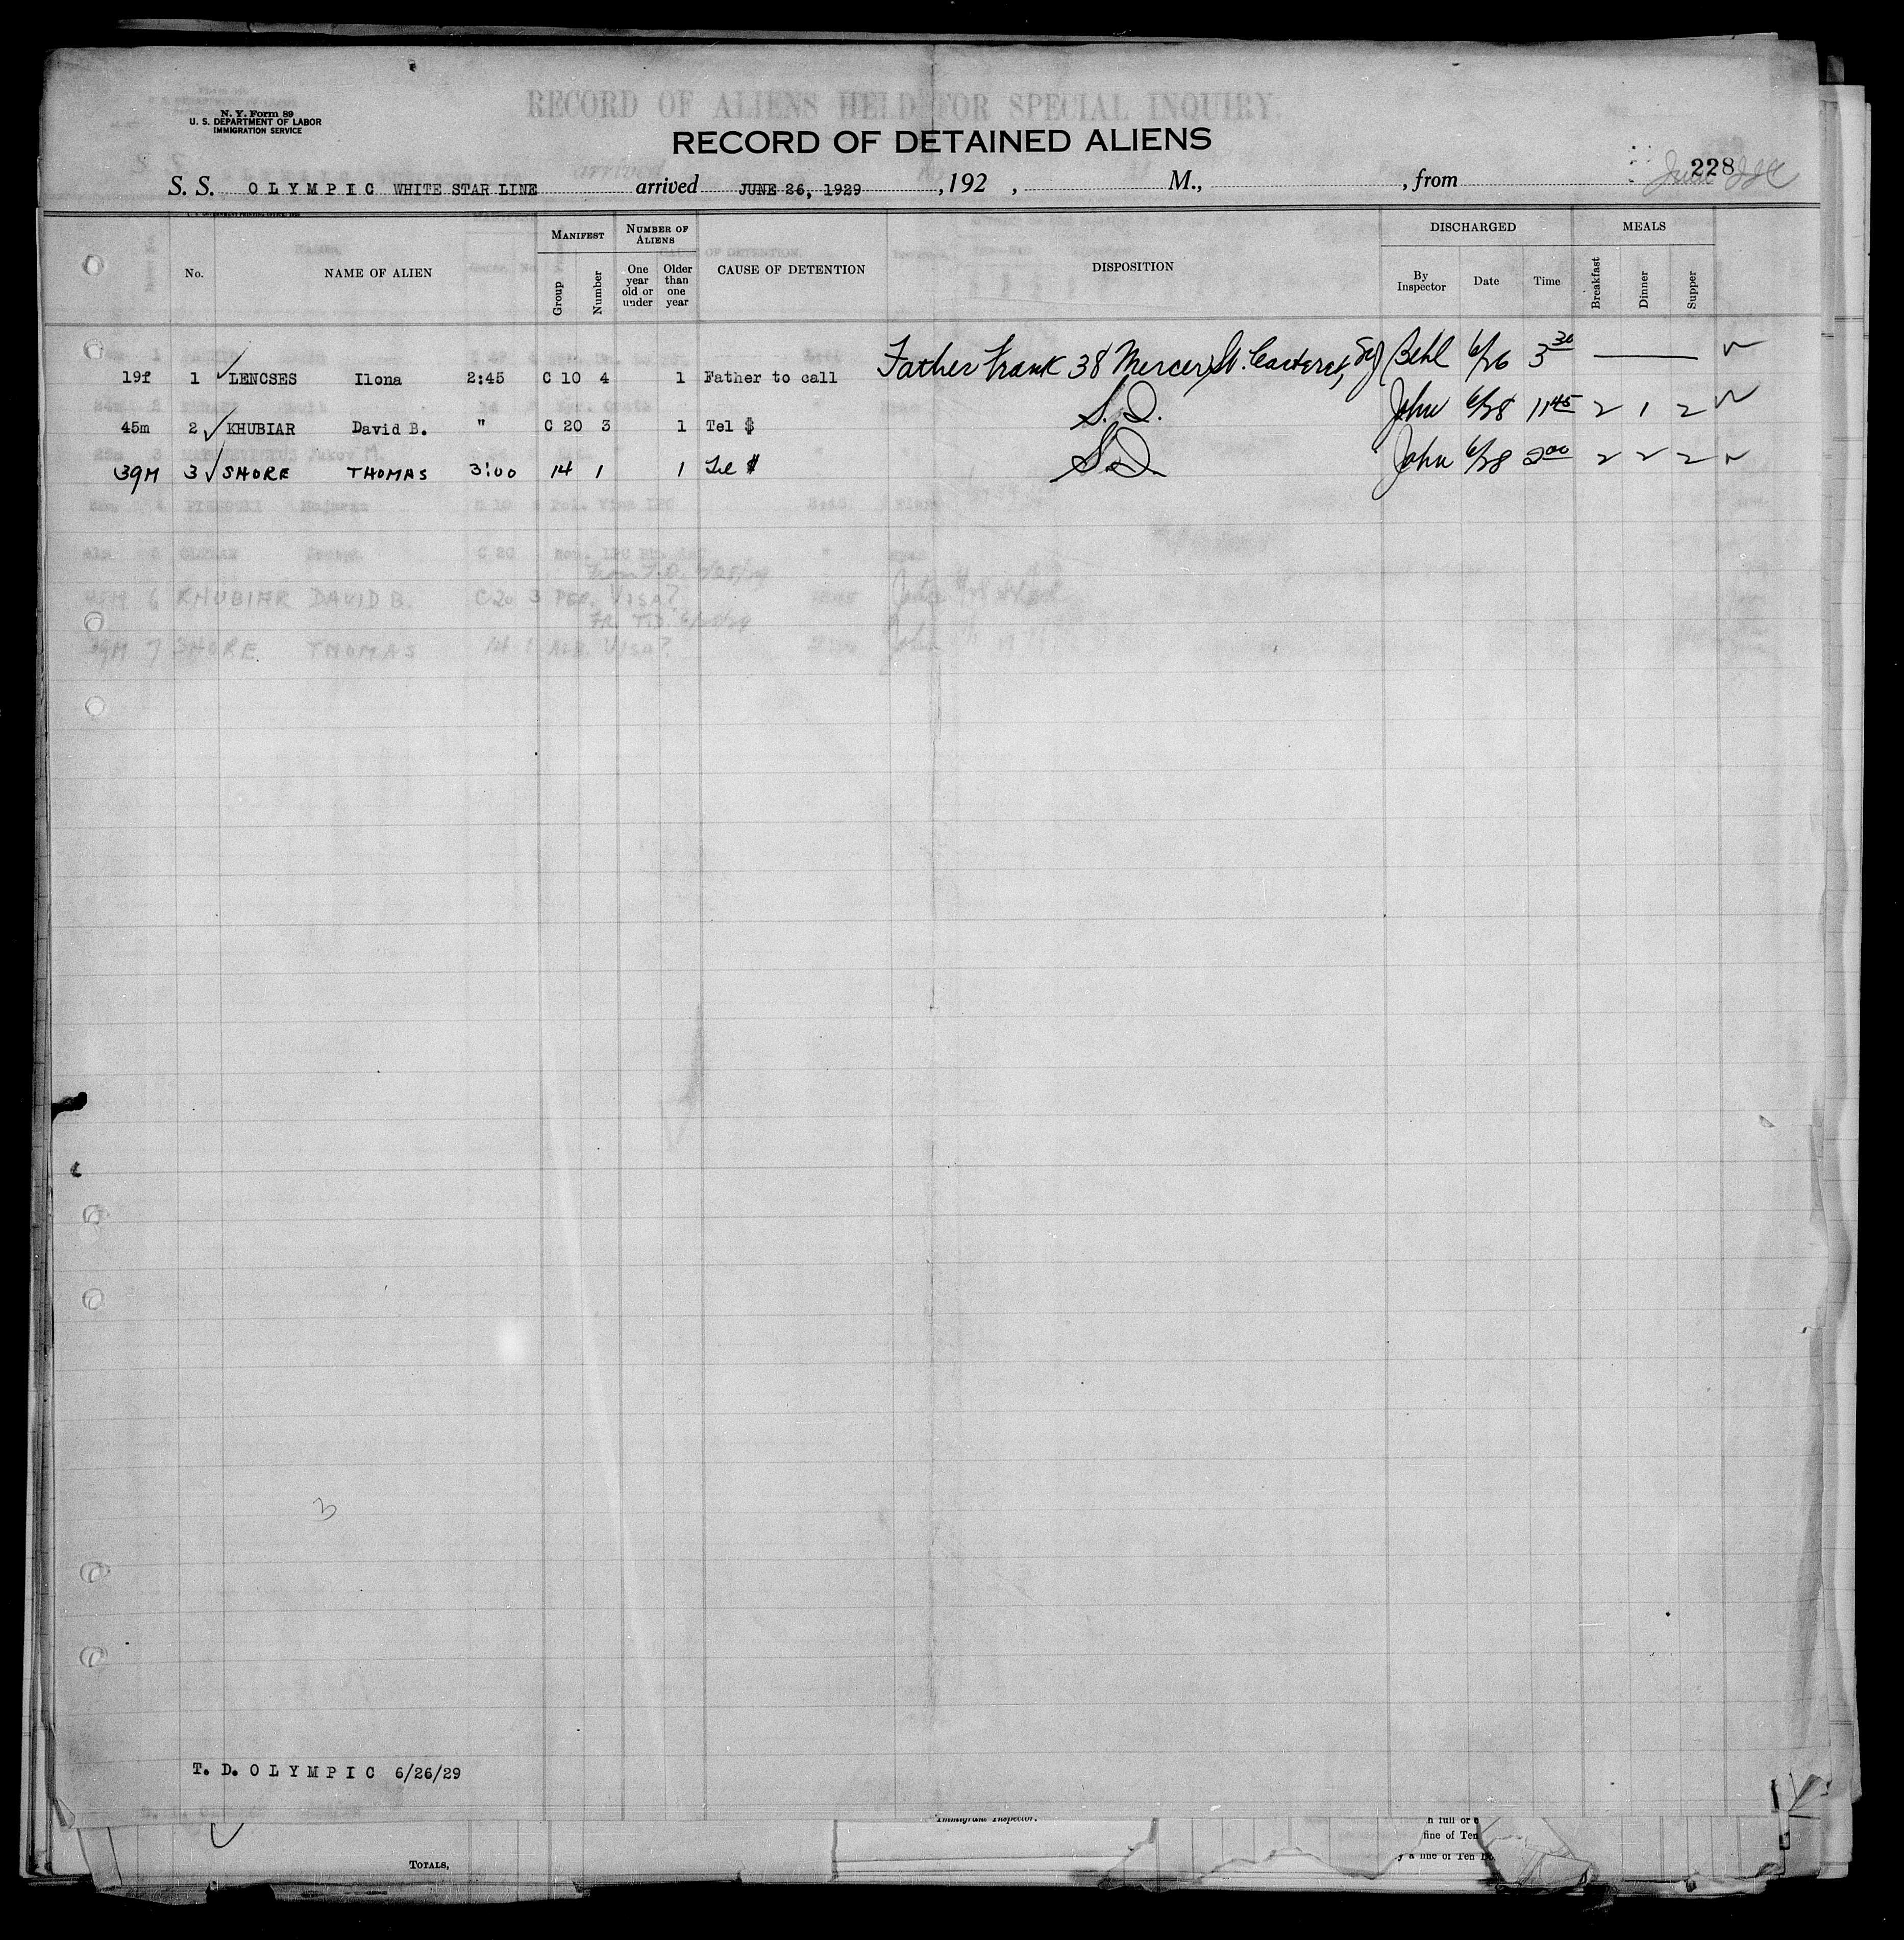 N. Y. Form 89
U. S. DEPARTMENT OF LABOR
IMMIGRATION SERVICE
RECORD OF ALIENS HELD FOR SPECIAL INQUIRY.
RECORD OF DETAINED ALIENS
228
S. S. OLYMPIC WHITE STAR LINE arrived JUNE 26, 1929, 192 , M., , from
No. NAME OF ALIEN MANIFEST Group Number NUMBER OF ALIENS One year old or under Older than one year CAUSE OF DETENTION DISPOSITION DISCHARGED By Inspector Date Time MEALS Breakfast Dinner Supper
19f 1 ✓ LENCSES Ilona 2:45 C 10 4 1 Father to call Father Frank 38 Mercer St. Carteret, NJ Behl 6/26 3 30
45m 2 ✓ KHUBIAR David B. " C 20 3 1 Tel $ S.I. John 6/28 11 45 2 1 2
39M 3 ✓ SHORE THOMAS 3:00 14 1 1 Tel $ S.I. John 6/28 2 00 2 2 2
6 KHUBIAR DAVID B. C 20 3 PER. VISA?
39M 7 SHORE THOMAS 14 1 ALB. VISA?
3
T. D. OLYMPIC 6/26/29
Immigrant Inspector.
fine of Ten
TOTALS,